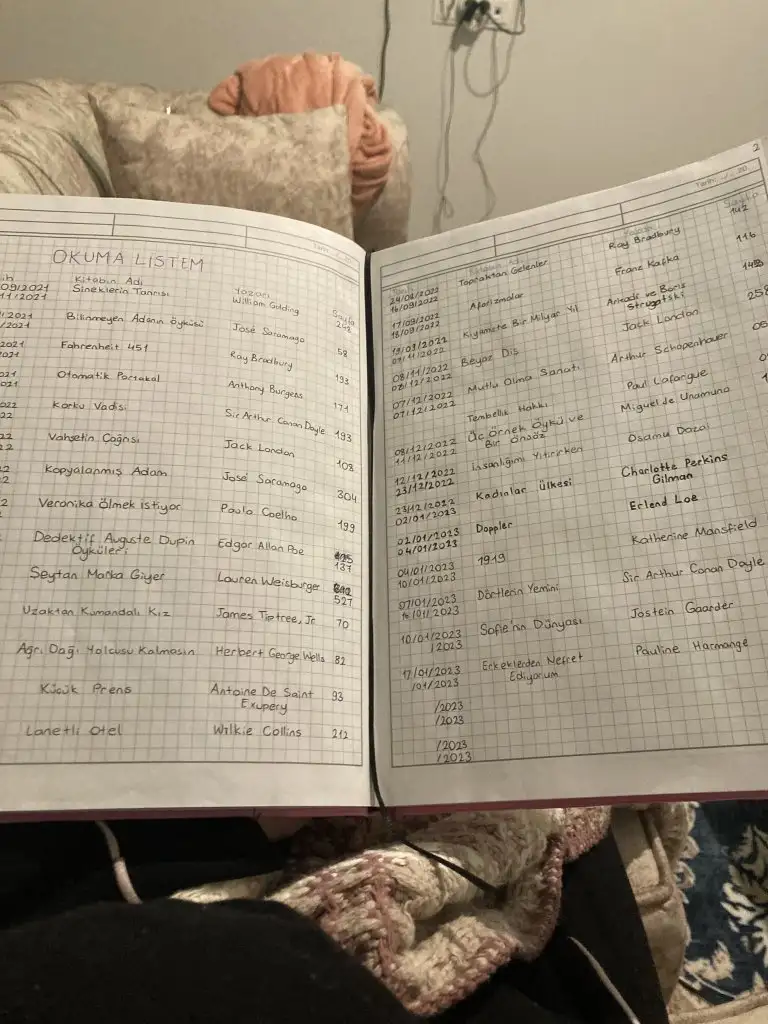 OKUMA LİSTEM
Kitabın Adı Yazarı Sayfa
09/2021 Sineklerin Tanrısı William Golding
11/2021
Bilinmeyen Adanın Öyküsü José Saramago 58
/2021
2021 Fahrenheit 451 Ray Bradbury 193
2021
Otomatik Portakal Anthony Burgess 171
Korku Vadisi Sir Arthur Conan Doyle 193
Vahşetin Çağrısı Jack London 108
Kopyalanmış Adam José Saramago 304
Veronika Ölmek istiyor Paulo Coelho 199
Dedektif Auguste Dupin Edgar Allan Poe
Öyküleri 137
Şeytan Marka Giyer Lauren Weisburger
527
Uzaktan Kumandalı Kız James Tiptree, Jr 70
Ağrı Dağı Yolcusu Kalmasın Herbert George Wells 82
Küçük Prens Antoine De Saint 93
Exupery
Lanetli Otel Wilkie Collins 212
2
Tarih
Tarih Kitabın Adı Yazarı Sayfa
Topraktan Gelenler Ray Bradbury 142
16/09/2022
17/09/2022 Aforizmalar Franz Kafka 116
18/09/2022
Kıyamete Bir Milyar Yıl Arkadi ve Boris
07/11/2022 Strugatski
08/11/2022 Beyaz Diş Jack London
02/12/2022
07/12/2022 Mutlu Olma Sanatı Arthur Schopenhauer
07/12/2022
Tembellik Hakkı Paul Lafargue
08/12/2022 Üç Örnek Öykü ve Miguel de Unamuno
11/12/2022 Bir Önsöz
12/12/2022 İnsanlığımı Yitirirken Osamu Dazai
23/12/2022
23/12/2022 Kadınlar Ülkesi Charlotte Perkins
02/01/2023 Gilman
02/01/2023 Doppler Erlend Loe
04/01/2023
04/01/2023 1919 Katherine Mansfield
10/01/2023
07/01/2023 Dörtlerin Yemini Sir Arthur Conan Doyle
/01/2023
10/01/2023 Sofie'nin Dünyası Jostein Gaarder
/2023
17/01/2023 Erkeklerden Nefret Pauline Harmange
/01/2023 Ediyorum
/2023
/2023
/2023
/2023